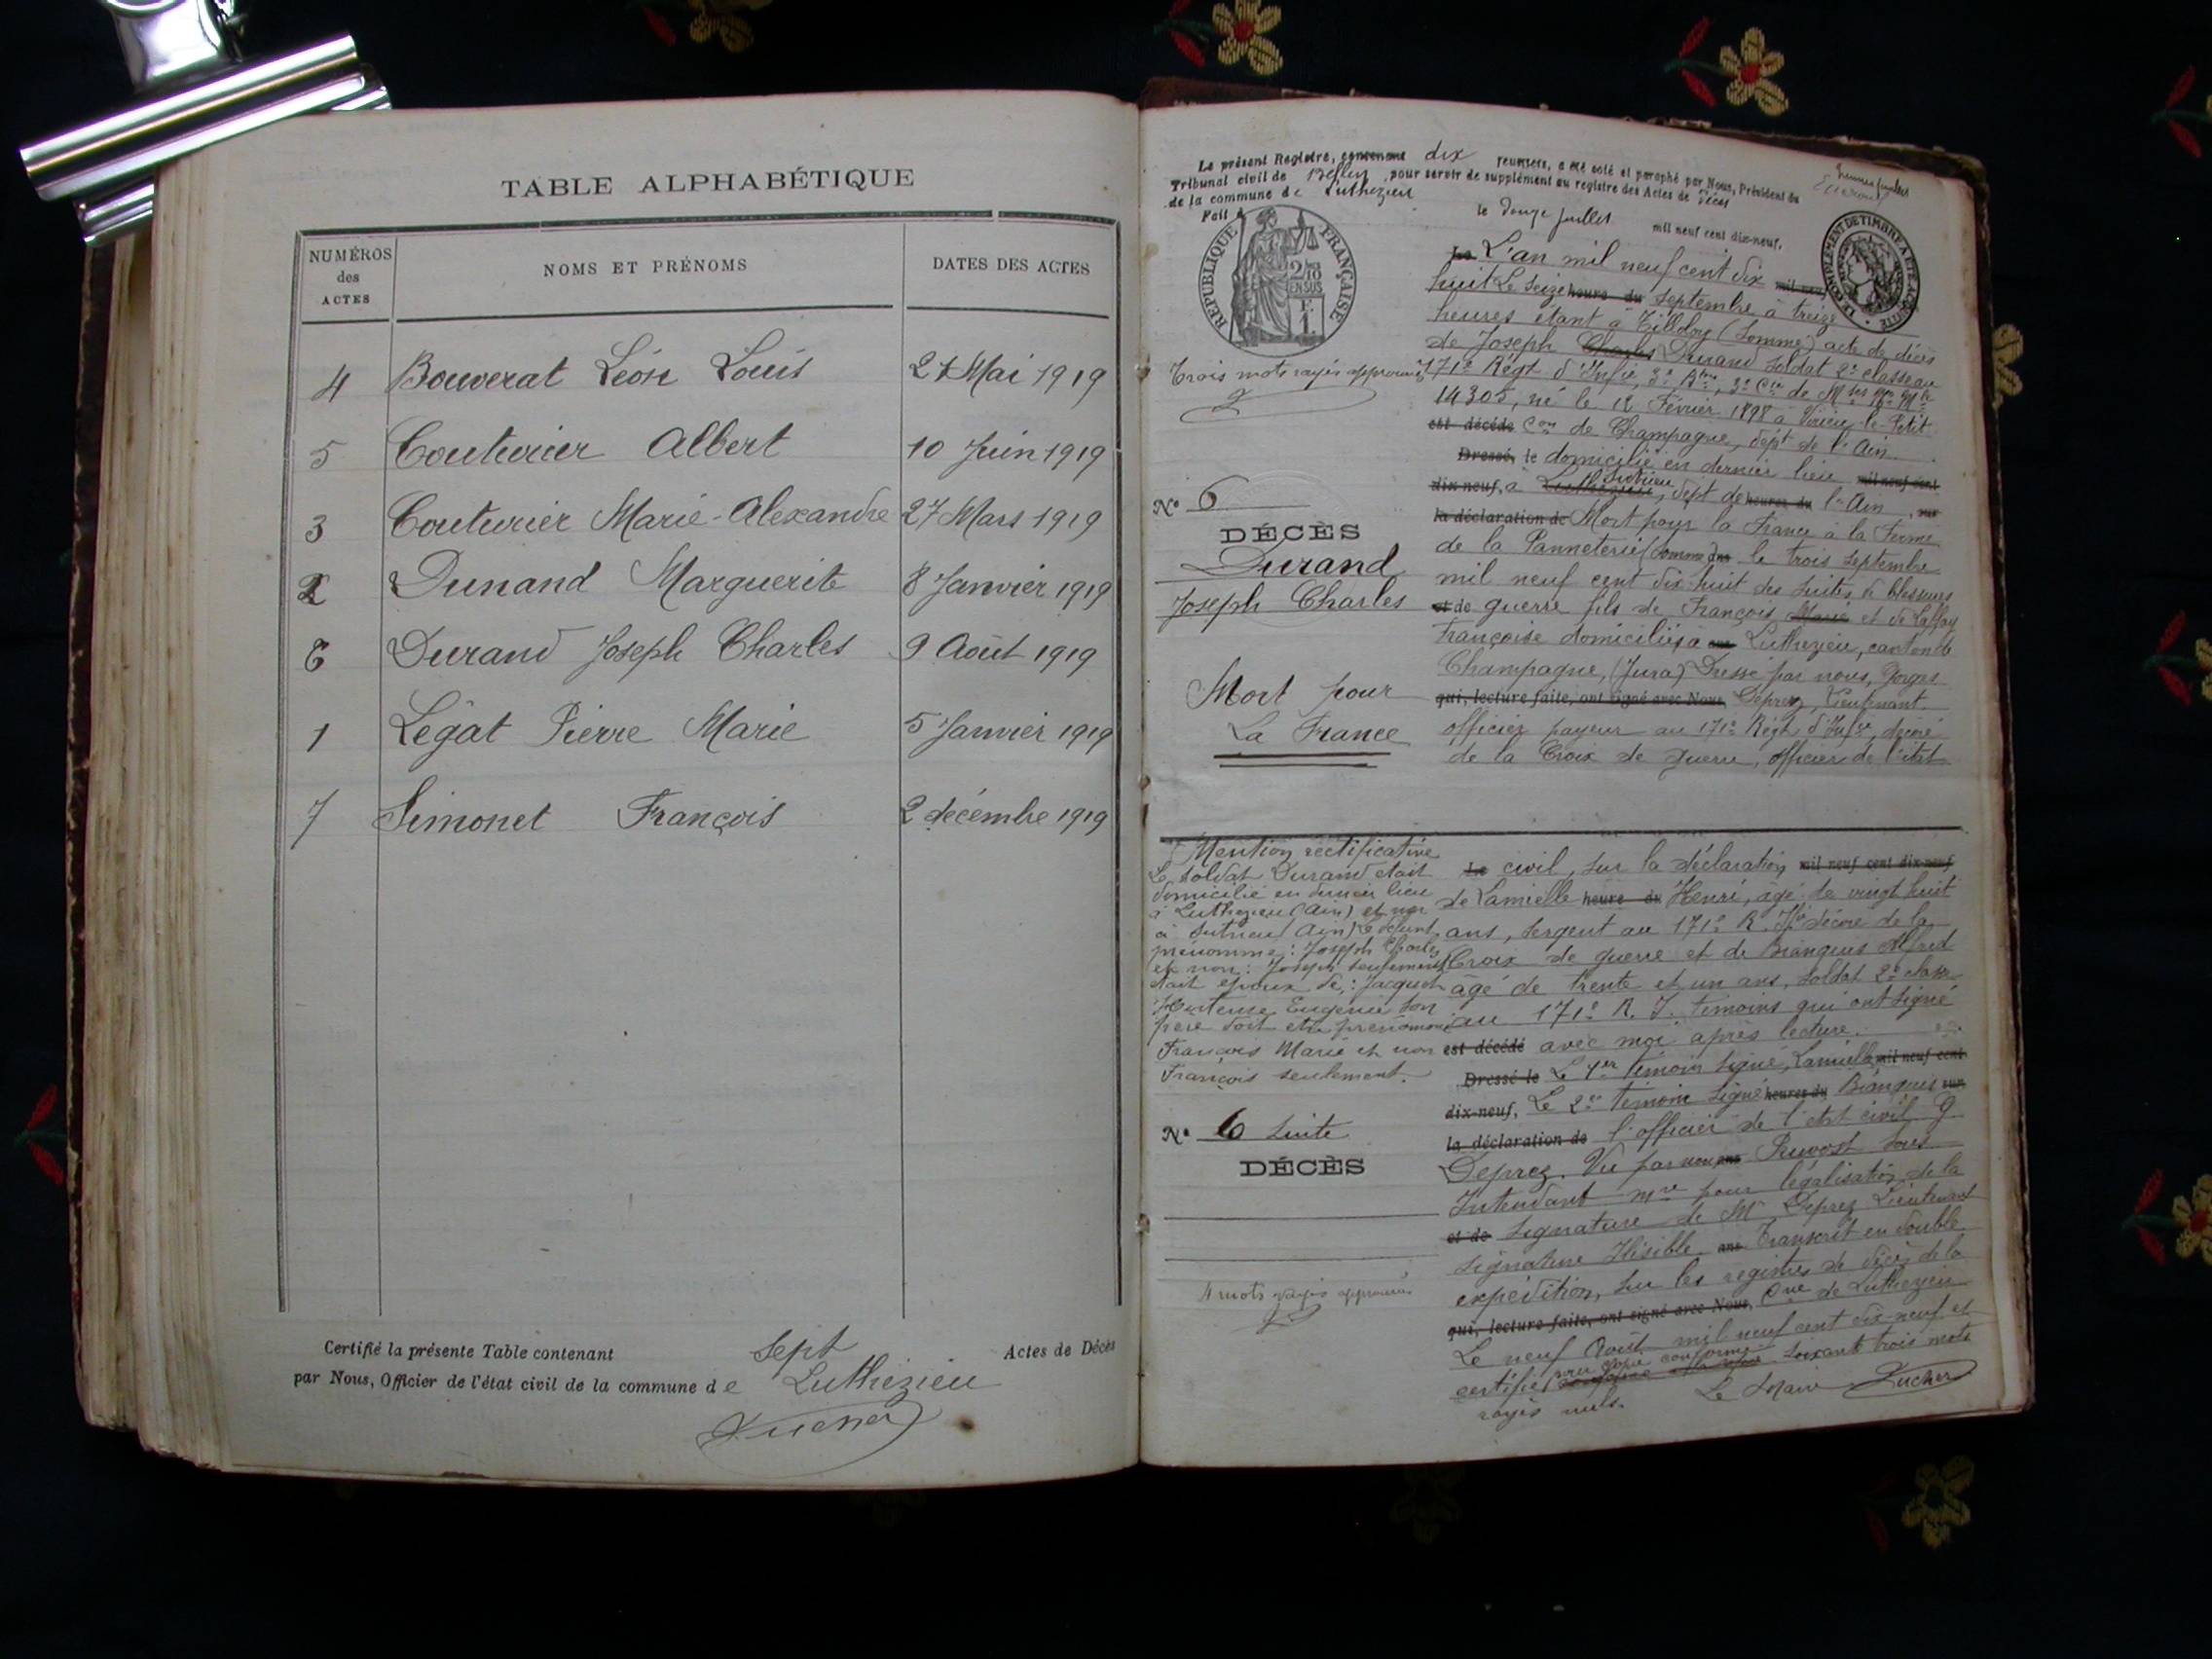 TABLE ALPHABÉTIQUE
NUMÉROS des ACTES
NOMS ET PRÉNOMS
DATES DES ACTES
4 Bouverat Léon Louis 21 Mai 1919
5 Couturier Albert 10 Juin 1919
3 Couturier Marie-Alexandre 27 Mars 1919
2 Dunand Marguerite 8 Janvier 1919
6 Durand Joseph Charles 9 Août 1919
1 Légat Pierre Marie 5 Janvier 1919
7 Simonet François 2 décembre 1919
Certifié la présente Table contenant sept Actes de Décès
par Nous, Officier de l'état civil de la commune de Luthézieu
Le présent Registre, contenant dix feuillets, a été coté et paraphé par Nous, Président du
Tribunal civil de Belley, pour servir de supplément au registre des Actes de Décès
de la commune de Luthezieu
Fait à le douze juillet mil neuf cent dix-neuf.
RÉPUBLIQUE FRANÇAISE
2/10 EN SUS
F. 1
Trois mots rayés approuvés
N° 6
DÉCÈS
Durand
Joseph Charles
Mort pour
La France
Le L'an mil neuf cent dix mil neuf
huit Le seize heure du septembre à treize
heures étant à Tilloloy (Somme) acte de décès
de Joseph Charles Durand soldat 2e classe au
171e Régt d'Infie, 3e Bton, 3e Cie de Mses Mle
14305, né le 12 Février 1898 à Virieu-le-Petit
est décédé Con de Champagne, dépt de l'Ain
Dressé, le domicilié en dernier lieu mil neuf cent
dix-neuf, à Luthézieu Sutrieu, dépt de heures du l'Ain, sur
la déclaration de Mort pour la France à la Ferme
de la Panneterie (Somme) ans le trois septembre
mil neuf cent dix-huit des suites de blessures
et de guerre fils de François Marie et de Laffay
Françoise domiciliés à ans Luthezieu, canton de
Champagne, (Jura) Dressé par nous, Georges
qui, lecture faite, ont signé avec Nous, Deprez, Lieutenant
officier payeur au 171e Régt d'Infie, décoré
de la Croix de guerre, officier de l'état
Mention rectificative
Le soldat Durand était
domicilié en dernier lieu
à Luthezieu (Ain) et non
à Sutrieu (Ain) Le défunt
prénommé: Joseph Charles
et non: Joseph seulement
était époux de: Jacquet
Hortense Eugénie Son
père doit être prénommé
François Marie et non
François seulement.
N° 6 suite
DÉCÈS
4 mots rayés approuvés
Le civil, sur la déclaration mil neuf cent dix-neuf
de Lamielle heure du Henri, âgé de vingt huit
ans, sergent au 171e R. Ii décoré de la
Croix de guerre et de Bianquis Alfred
âgé de trente et un ans, soldat 2e classe
au 171e R. I. témoins qui ont signé
est décédé avec moi après lecture.
Dressé le Le 1er témoin signé, Lamielle mil neuf cent
dix-neuf, Le 2e témoin signé heures du Bianquis sur
la déclaration de l'officier de l'état civil G.
Deprez. Vu par nous ans Prevost sous
Intendant mre pour légalisation de la
et de signature de Mr Deprez Lieutenant
signature illisible. ans Transcrit en double
expédition, sur les registres de décès de la
qui, lecture faite, ont signé avec Nous, Cne de Luthezieu
Le neuf Août mil neuf cent dix-neuf et
certifié pour copie conforme soixante trois mots
rayés nuls. Le Maire